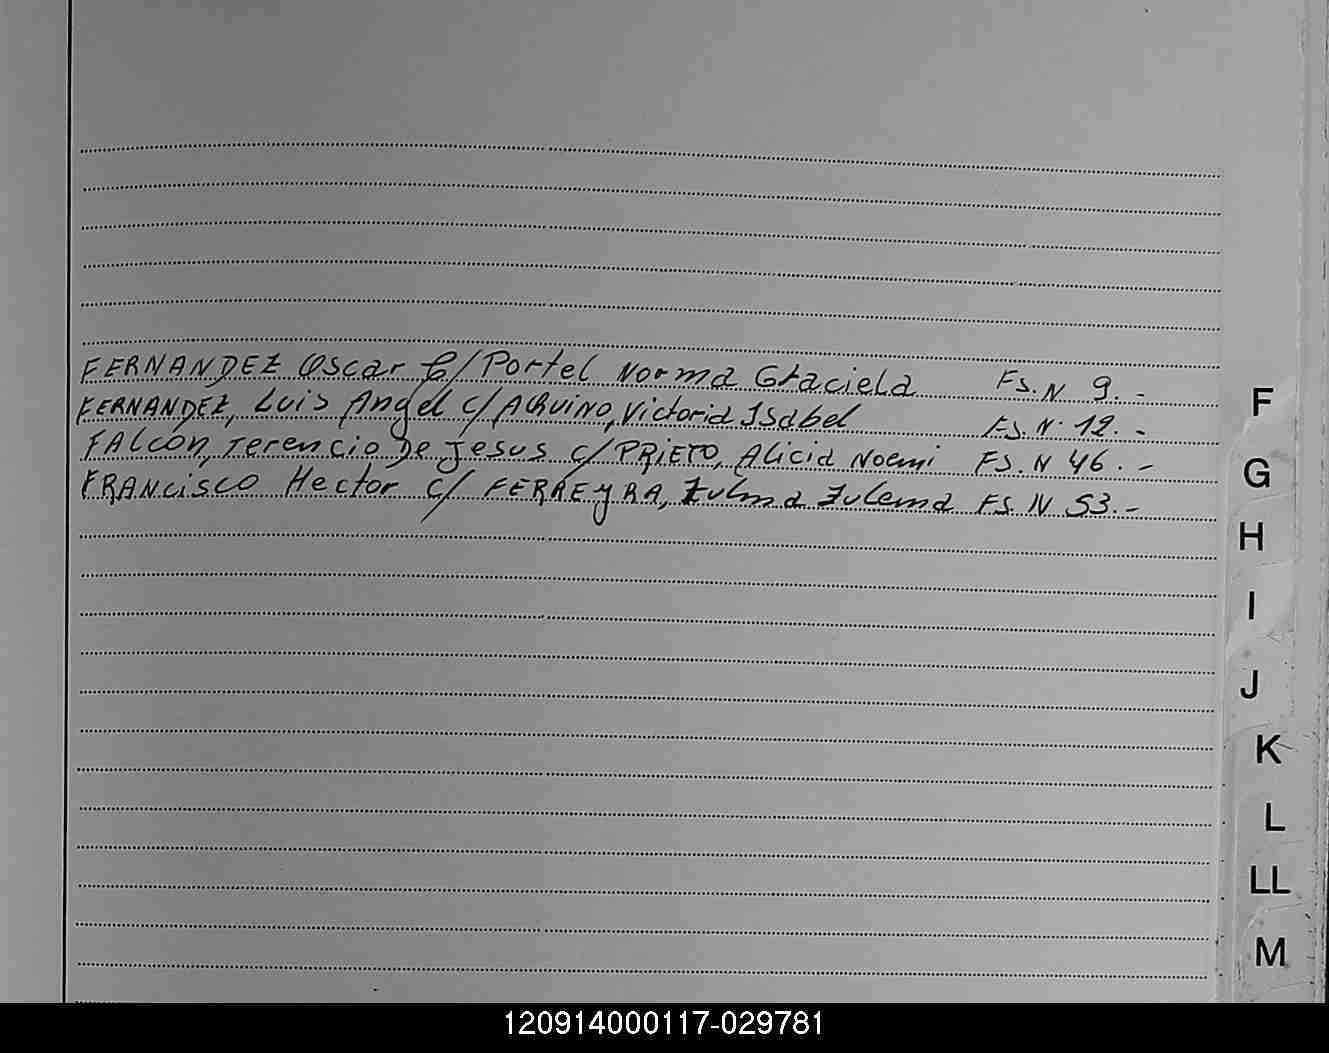 FERNANDEZ Oscar C/ Portel Norma Graciela Fs. N 9.-
FERNANDEZ, Luis Angel C/ AQUINO, Victoria ISabel Fs. N. 12.-
FALCON, Terencio De Jesus C/ PRIETO, Alicia Noemi FS. N 46.-
FRANCISCO Hector C/ FERREYRA, Zulma Zulema FS. N 53.-
F
G
H
I
J
K
L
LL
M
120914000117-029781